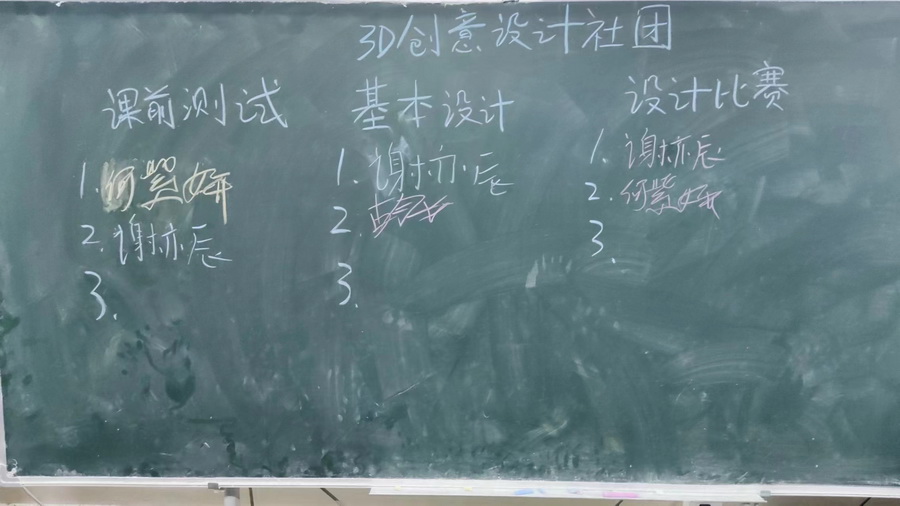 3D创意设计社团
课前测试
1.何紫妍
2.谢亦辰
3.
基本设计
1.谢亦辰
2.
3.
设计比赛
1.谢亦辰
2.何紫妍
3.